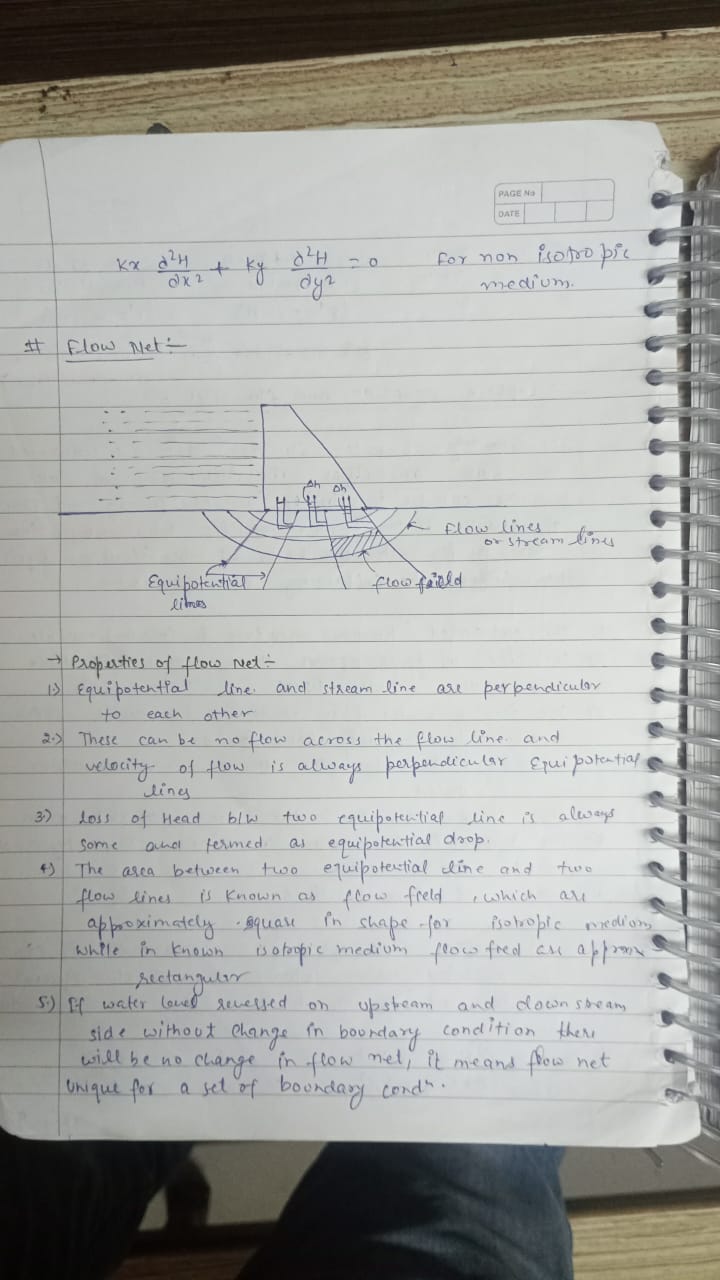 PAGE No
DATE
Kx ∂²H/∂x² + Ky ∂²H/∂y² = 0 For non isotropic
medium.
# Flow Net :-
Δh Δh
Flow lines
or stream lines
Equipotential
lines
flow field
→ Properties of flow Net :-
1.) Equipotential line and stream line are perpendicular
to each other
2.) These can be no flow across the flow line and
velocity of flow is always perpendicular Equipotential
lines
3.) loss of Head b/w two equipotential line is always
Same and termed as equipotential drop.
4) The area between two equipotential line and two
flow lines is known as flow field, which are
approximately square in shape for isotropic medium
while in known isotropic medium flow fred are approx
rectangular
5.) If water level revessed on upsteam and down steam
side without change in boundary condition there
will be no change in flow net, it means flow net
unique for a set of boundary condⁿ.